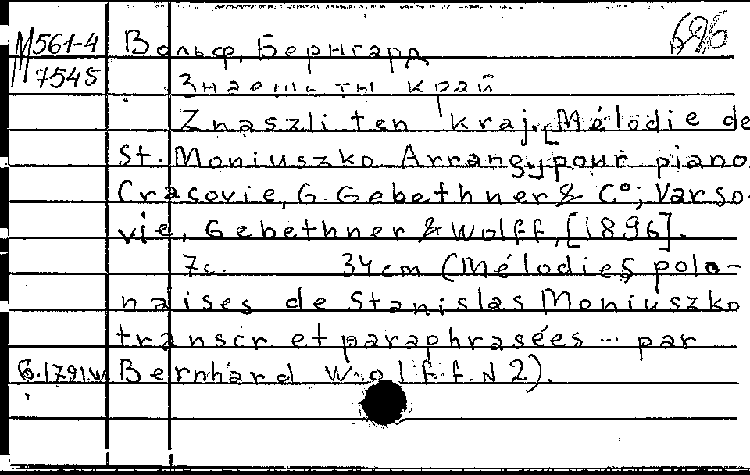 M561-4 Вольф, Бернгард 696
7545 Знаешь ты край
Znaszli ten kraj. [Mélodie de
St. Moniuszko Arrang. pour piano
Cracovie, G. Gebethner & C°; Varso-
vie, Gebethner & Wolff, [1896].
7с. 34cm (Mélodies polo-
naises de Stanislas Moniuszko
transcr. et paraphrasées ... par
Bernhard Wolff. N 2).